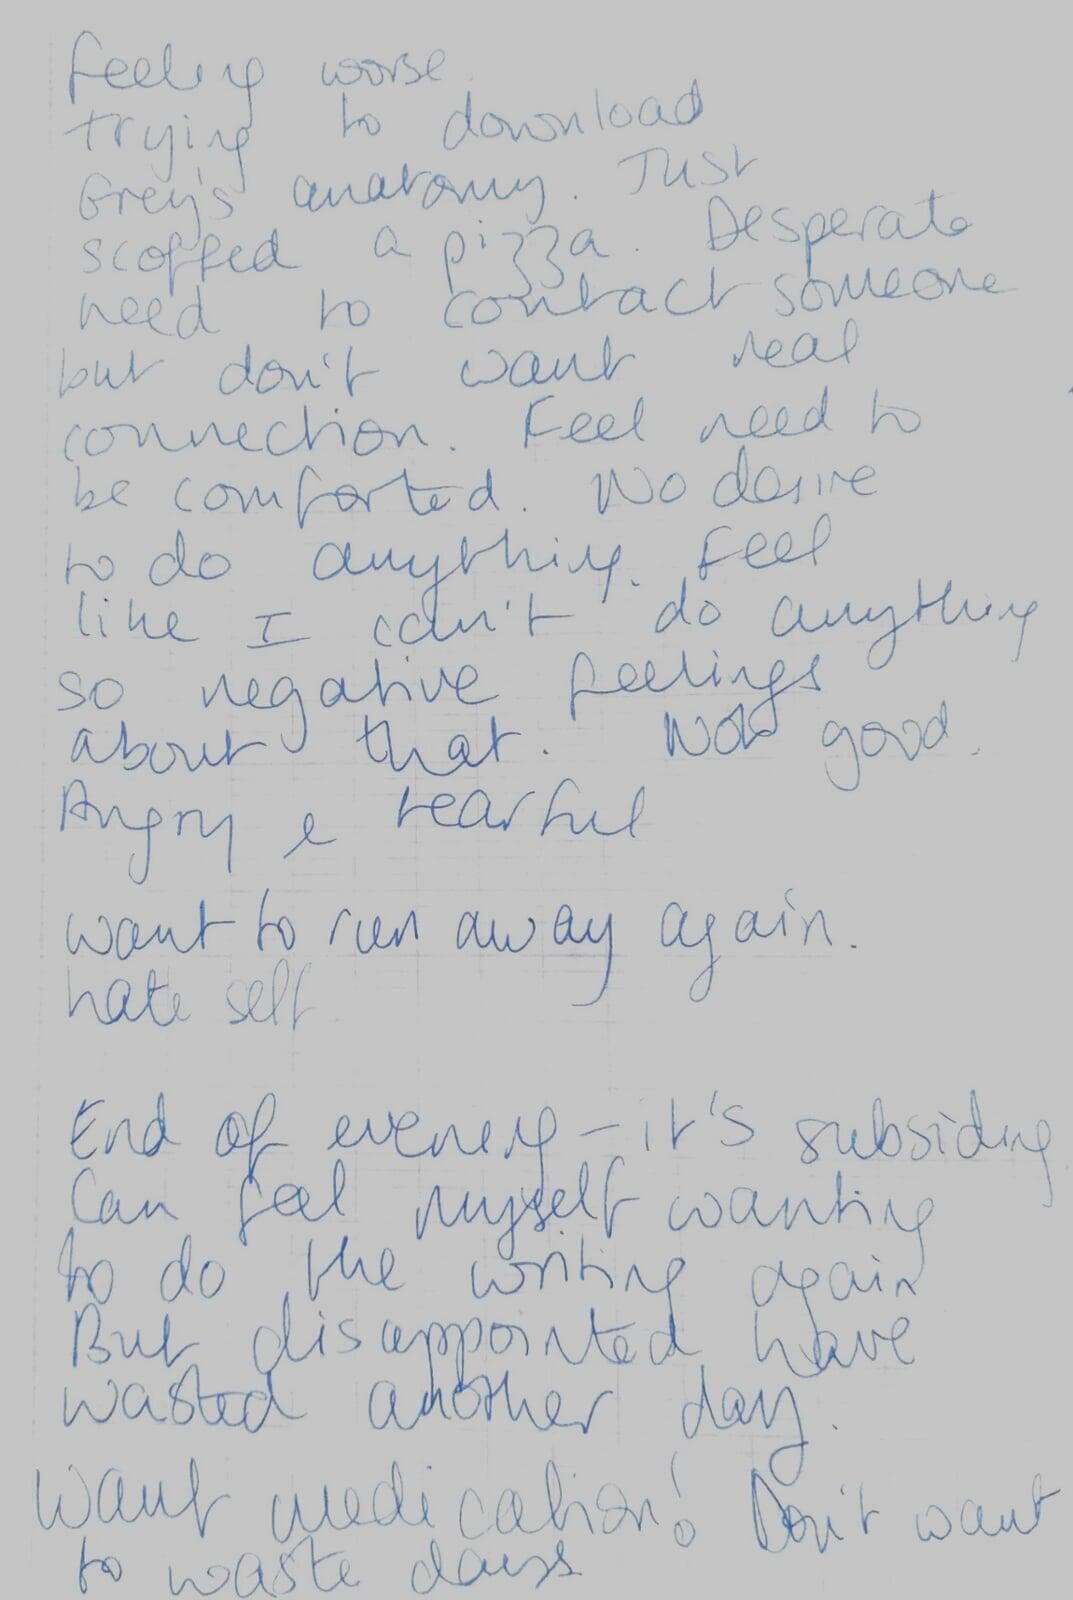 Feeling worse.
trying to download
Grey's anatomy. Just
scoffed a pizza. Desperate
need to contact someone
but don't want real
connection. Feel need to
be comforted. No desire
to do anything. Feel
like I can't do anything
so negative feelings
about that. Not good.
Angry & tearful
want to run away again.
hate self
End of evening - it's subsiding
Can feel myself wanting
to do the writing again
But disappointed have
wasted another day.
Want medication! Don't want
to waste days